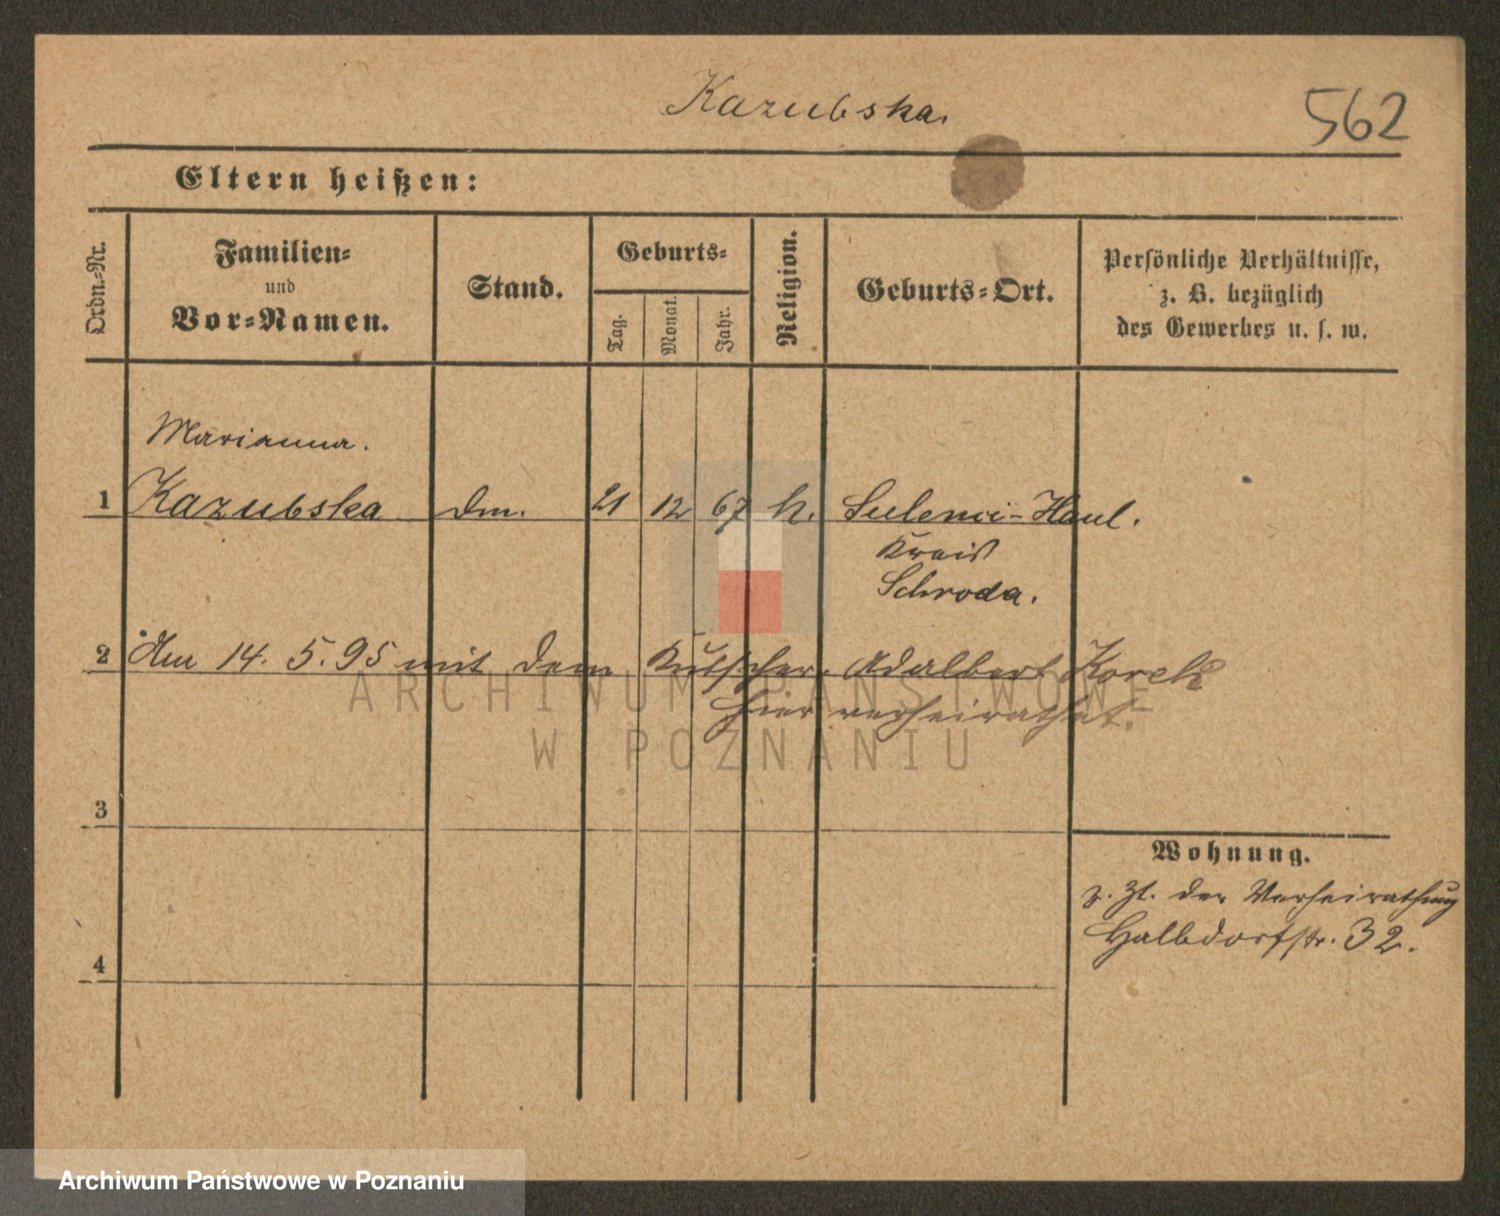 Kazubska.
562
Eltern heißen:
Ordn.-Nr.
Familien-
und
Vor-Namen.
Stand.
Geburts-
Tag.
Monat.
Jahr.
Religion.
Geburts-Ort.
Persönliche Verhältnisse,
z. B. bezüglich
des Gewerbes u. s. w.
Marianna.
1 Kazubska 21 12 67 k. Sulenci-Haul.
Kreis
Schroda.
2 Am 14. 5. 95 mit dem Kutscher Adalbert Korek
hier verheirathet.
3
Wohnung.
z. Zt. der Verheirathung
Halbdorfstr. 32.
4
ARCHIWUM PAŃSTWOWE
W POZNANIU
Archiwum Państwowe w Poznaniu